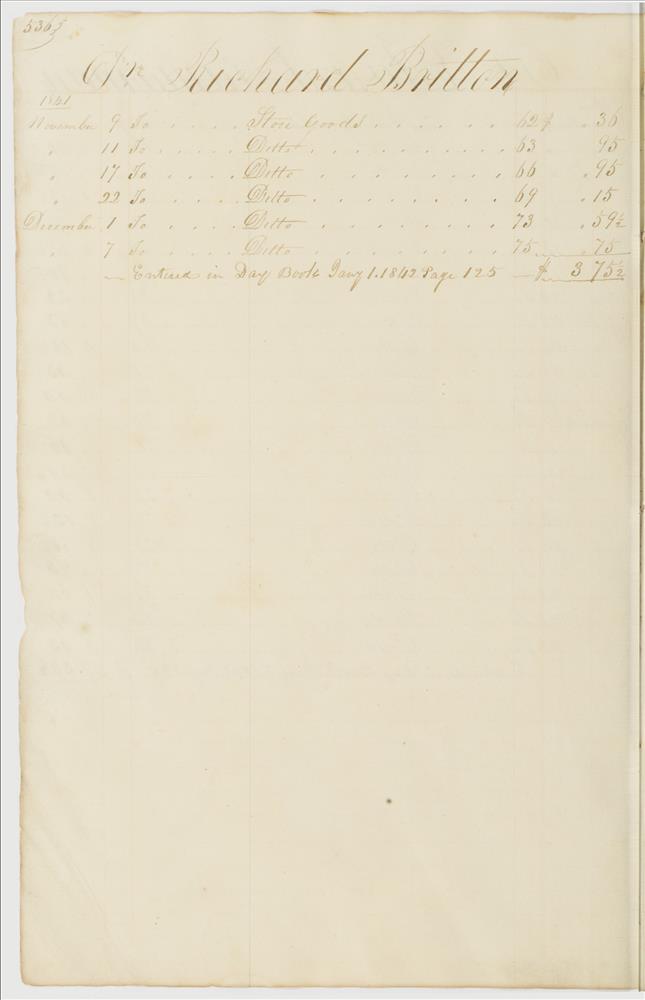 536
Dr Richard Britton
1841
November 9 To . . . . Store Goods . . . . . . 62 $ . 36
" 11 To . . . . . Ditto . . . . . . . . . 63 95
" 17 To . . . . Ditto . . . . . . . . 66 . 95
" 22 To . . . . Ditto . . . . . . . . 69 . 15
December 1 To . . . . Ditto . . . . . . . . 73 . 59½
" 7 To . . . . Ditto . . . . . . . . . 75 . 75
— Entered in Day Book Jany 1. 1842 Page 125 — $ 3 75½